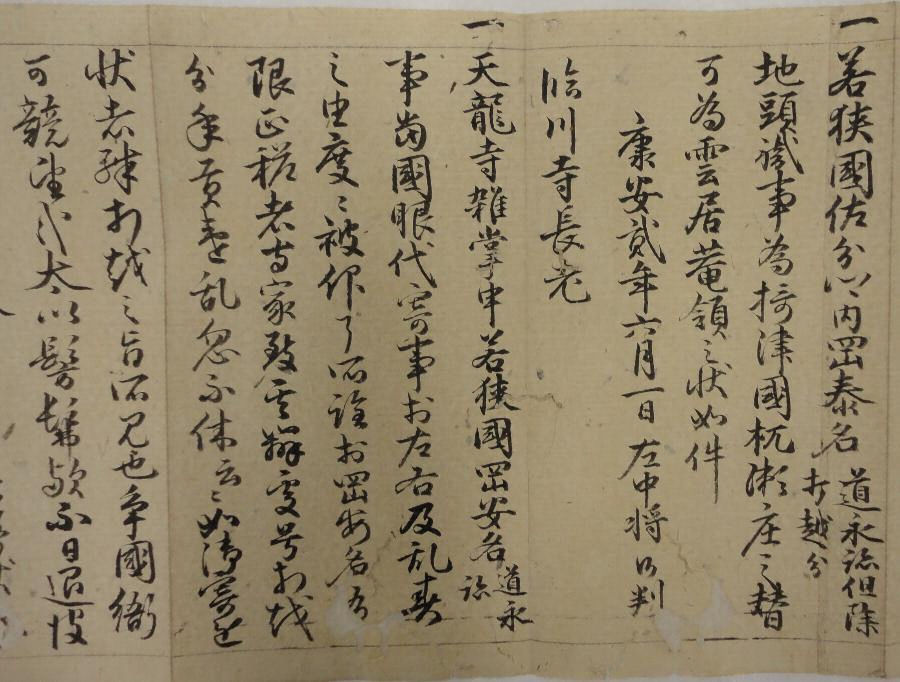 一 若狭國佐分郷内岡泰名 道永跡但除
打越分
地頭職事為摂津國杭瀬庄之替
可為雲居菴領之状如件
康安貳年六月一日 左中将 御判
臨川寺長老
一 天龍寺雑掌申若狭國岡安名 道永
跡
事當國眼代寄事於左右及乱妨
之由度々被仰了所詮於岡安名者
限正税者寺家致其弁変号打越
分年貢違乱忽不休云々如請寄進
状者殊打越之旨所見也争國衙
可競望哉太以髣髴歟不日退彼